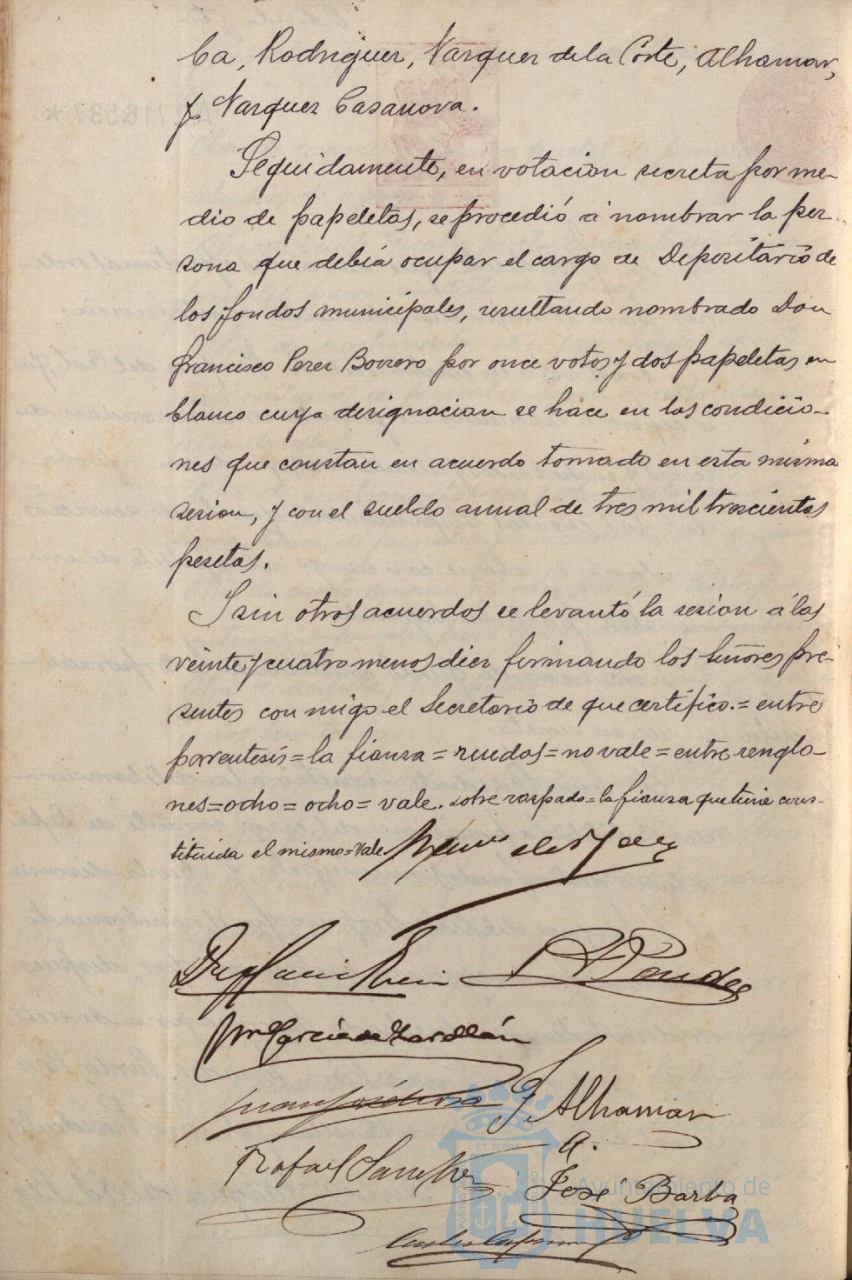 ba, Rodriguez, Vazquez de la Corte, Alhamar,
y Vazquez Casanova.
Seguidamente, en votacion secreta por me-
dio de papeletas, se procedió á nombrar la per-
sona que debía ocupar el cargo de Depositario de
los fondos municipales, resultando nombrado Don
Francisco Perez Borrero por once votos y dos papeletas en
blanco cuya designacion se hace en las condicio-
nes que constan en acuerdo tomado en esta misma
sesion, y con el sueldo anual de tres mil trescientas
pesetas.
Y sin otros acuerdos se levantó la sesion á las
veinte y cuatro menos diez firmando los Señores pre-
sentes con migo el Secretario de que certifico.=entre
parentesis=la fianza=ruedas=no vale=entre renglo-
nes=ocho=ocho=vale. sobre raspado=la fianza que tiene cons-
tituida el mismo=Vale
F. Alhamar
Rafael Sanchez
A.
José Barba
Ayuntamiento de
HUELVA